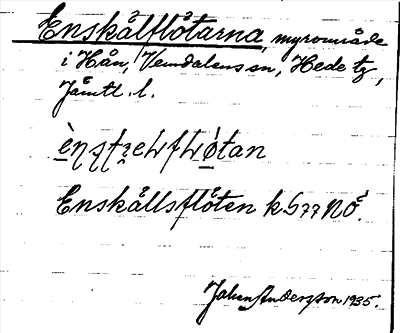 Enskålflåtarna, myrområde
i Hån, Vemdalens sn, Hede tg,
Jämtl. l.
Enskållsflåten k G77 NÖ.
Johan Andersson 1935.